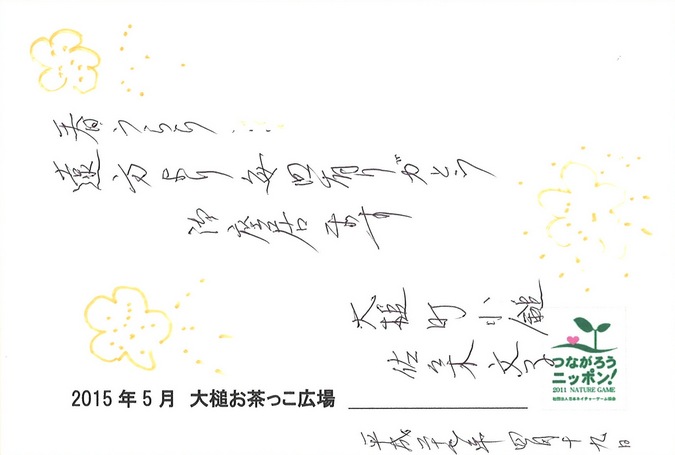 春うらら
遠方より毎回有りがとう
御座居ます
大槌町小鎚
佐々木文子
つながろう
ニッポン!
2011 NATURE GAME
社団法人日本ネイチャーゲーム協会
2015年5月 大槌お茶っこ広場
平成二十七年四月十九日